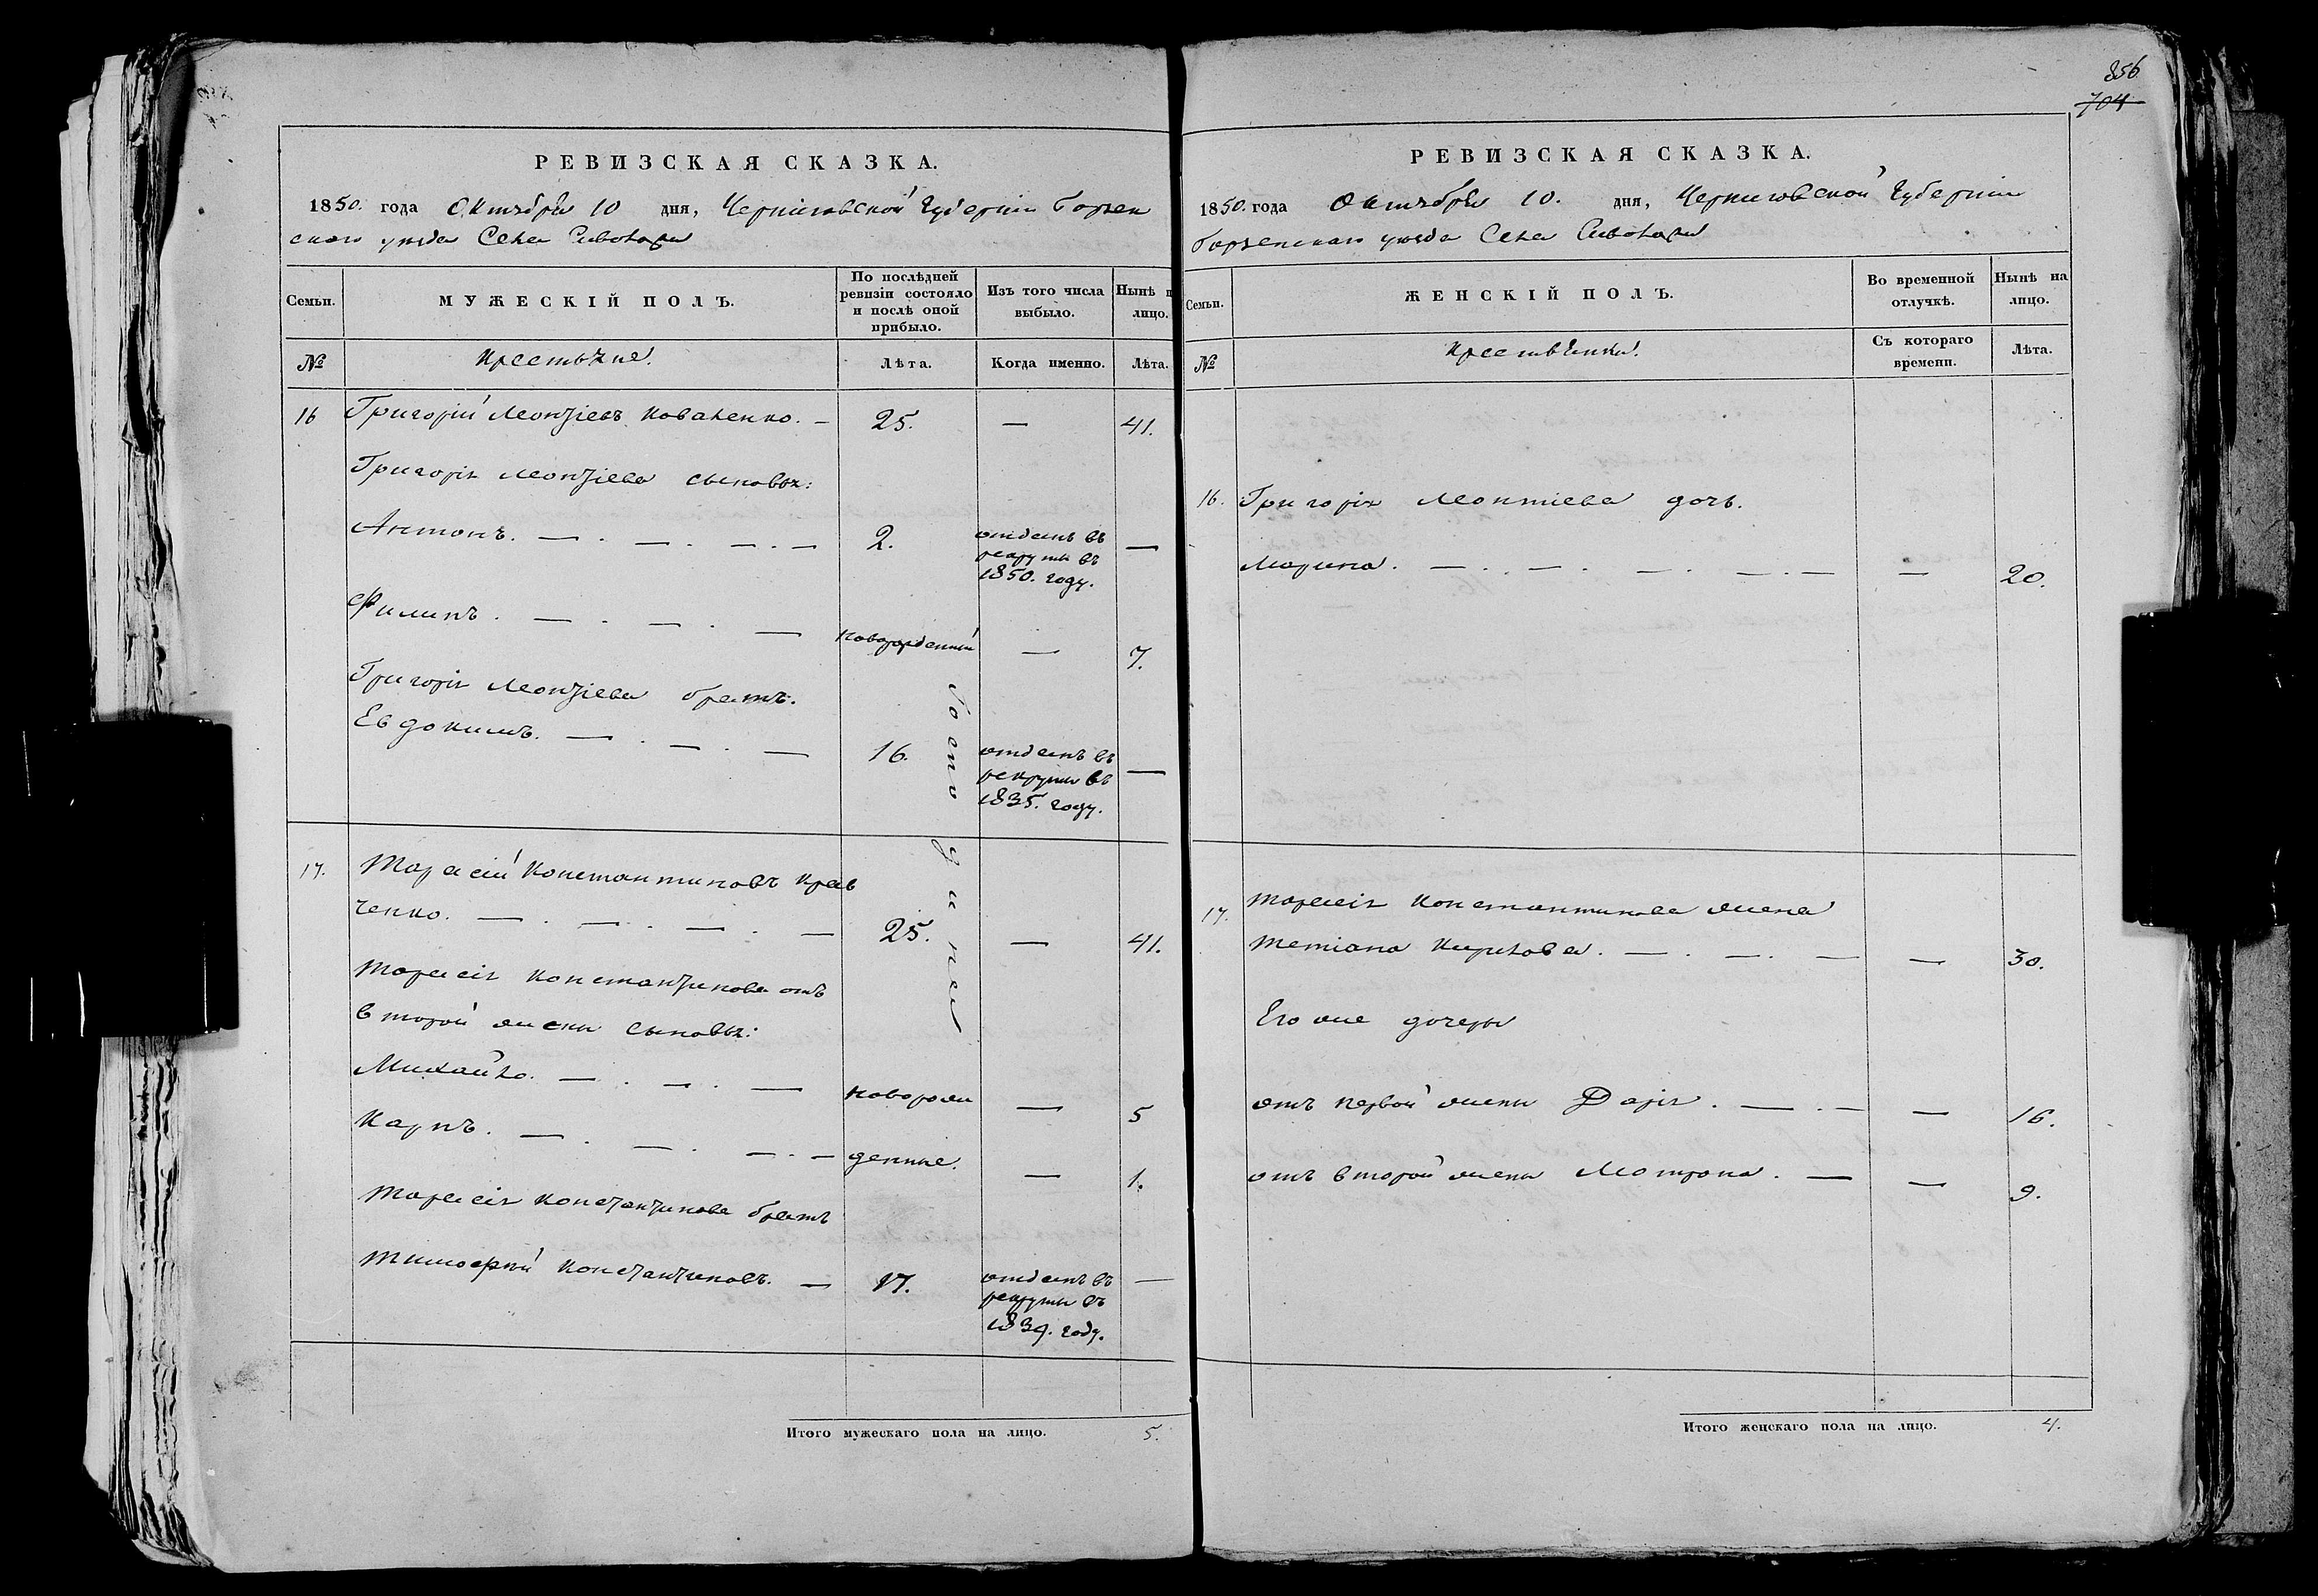 856
704
РЕВИЗСКАЯ СКАЗКА.
1850. года Октября 10 дня, Черниговской Губерніи Борзен
скаго уезда Села
Семьи.
МУЖЕСКІЙ ПОЛЪ.
По послѣдней
ревизіи состояло
и послѣ оной
прибыло.
Изъ того числа
выбыло.
Нынѣ н
лицо.
№
Крестьяне.
Лѣта.
Когда именно.
Лѣта.
16 Григорій Леонтіевъ Коваленко. — 25. — 41.
Григорія Леонтіева сыновья:
Антонъ. — . — . — . — 2. отданъ въ —
рекруты въ
1850. году.
Филипъ. — . — . — новорожденный — 7.
Григорія Леонтіева братъ:
Евдокимъ. — . — . — 16. отданъ въ —
рекруты въ
1835. году.
17. Тарасій Константиновъ Крав
ченко. — . — . — . — 25. — 41.
Тарасія Константинова отъ
второй жены сыновья:
Михайло. — . — . — новорож — 5
Карпъ. — . — . — . — денные. — 1.
Тарасія Константинова братъ
Тимофей Константиновъ. — 17. отданъ въ —
рекруты въ
1839. году.
Итого мужескаго пола на лицо. 5.
РЕВИЗСКАЯ СКАЗКА.
1850. года Октября 10. дня, Черниговской Губерніи
Борзенскаго уезда Села
Семьи.
ЖЕНСКІЙ ПОЛЪ.
Во временной
отлучкѣ.
Нынѣ на
лицо.
№
Крестьянки.
Съ котораго
времени.
Лѣта.
16. Григорія Леонтіева дочь.
Марина. — . — . — . — . — — 20.
17. Тарасія Константинова жена
Тетіана Кирилова. — . — . — — 30.
Его же дочери
отъ первой жены Дарія. — . — — 16.
отъ второй жены Мотрона. — — 9.
Итого женскаго пола на лицо. 4.